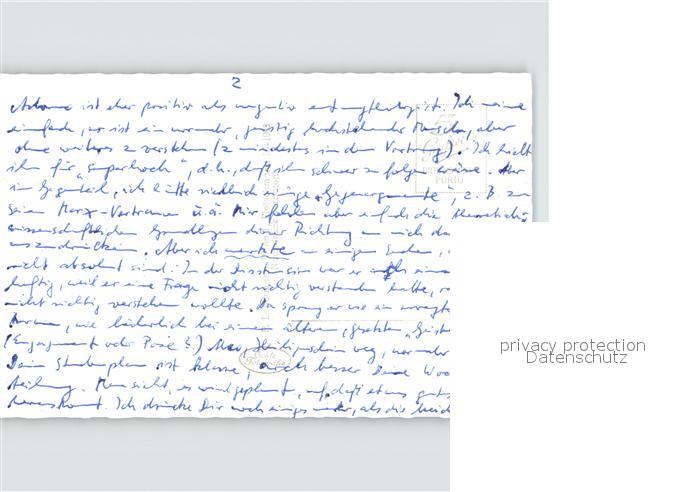 2
Adorno ist eher positiv als negativ Ich meine
einfach, er ist ein normaler, geistig hochstehender Mensch, aber
ohne weiteres z verstehen (z mindestens in dem Vortrag). Ich hielt
ihn für "superhoch", d.h., daß ihm schwer zu folgen wäre. Aber
im Gegenteil, ich hätte einige "Gegenargumente", z.B. zu
seinem Marx-Vertrauen u.ä. Mir fehlen aber einfach die theoretisch-
wissenschaftlichen Grundlagen dieser Richtung um mich da
auszudrücken. Aber ich merkte an einigen Enden,
nicht absolut sind. In der Diskussion war er
heftig, weil er eine Frage nicht richtig verstanden hatte,
nicht richtig verstehen wollte. Da sprang er wie ein
herum, wie lächerlich bei einem älteren, gesetzten,
(Engagement oder Pose?.) Also, Heiligenschein weg,
Dein Stundenplan ist klasse, auch besser Deine
teilung. Man sieht, es wird geplant, auf daß etwas gutes
herauskommt. Ich drücke Dir noch einiges mehr, als die beid
PORTO
privacy protection
Datenschutz